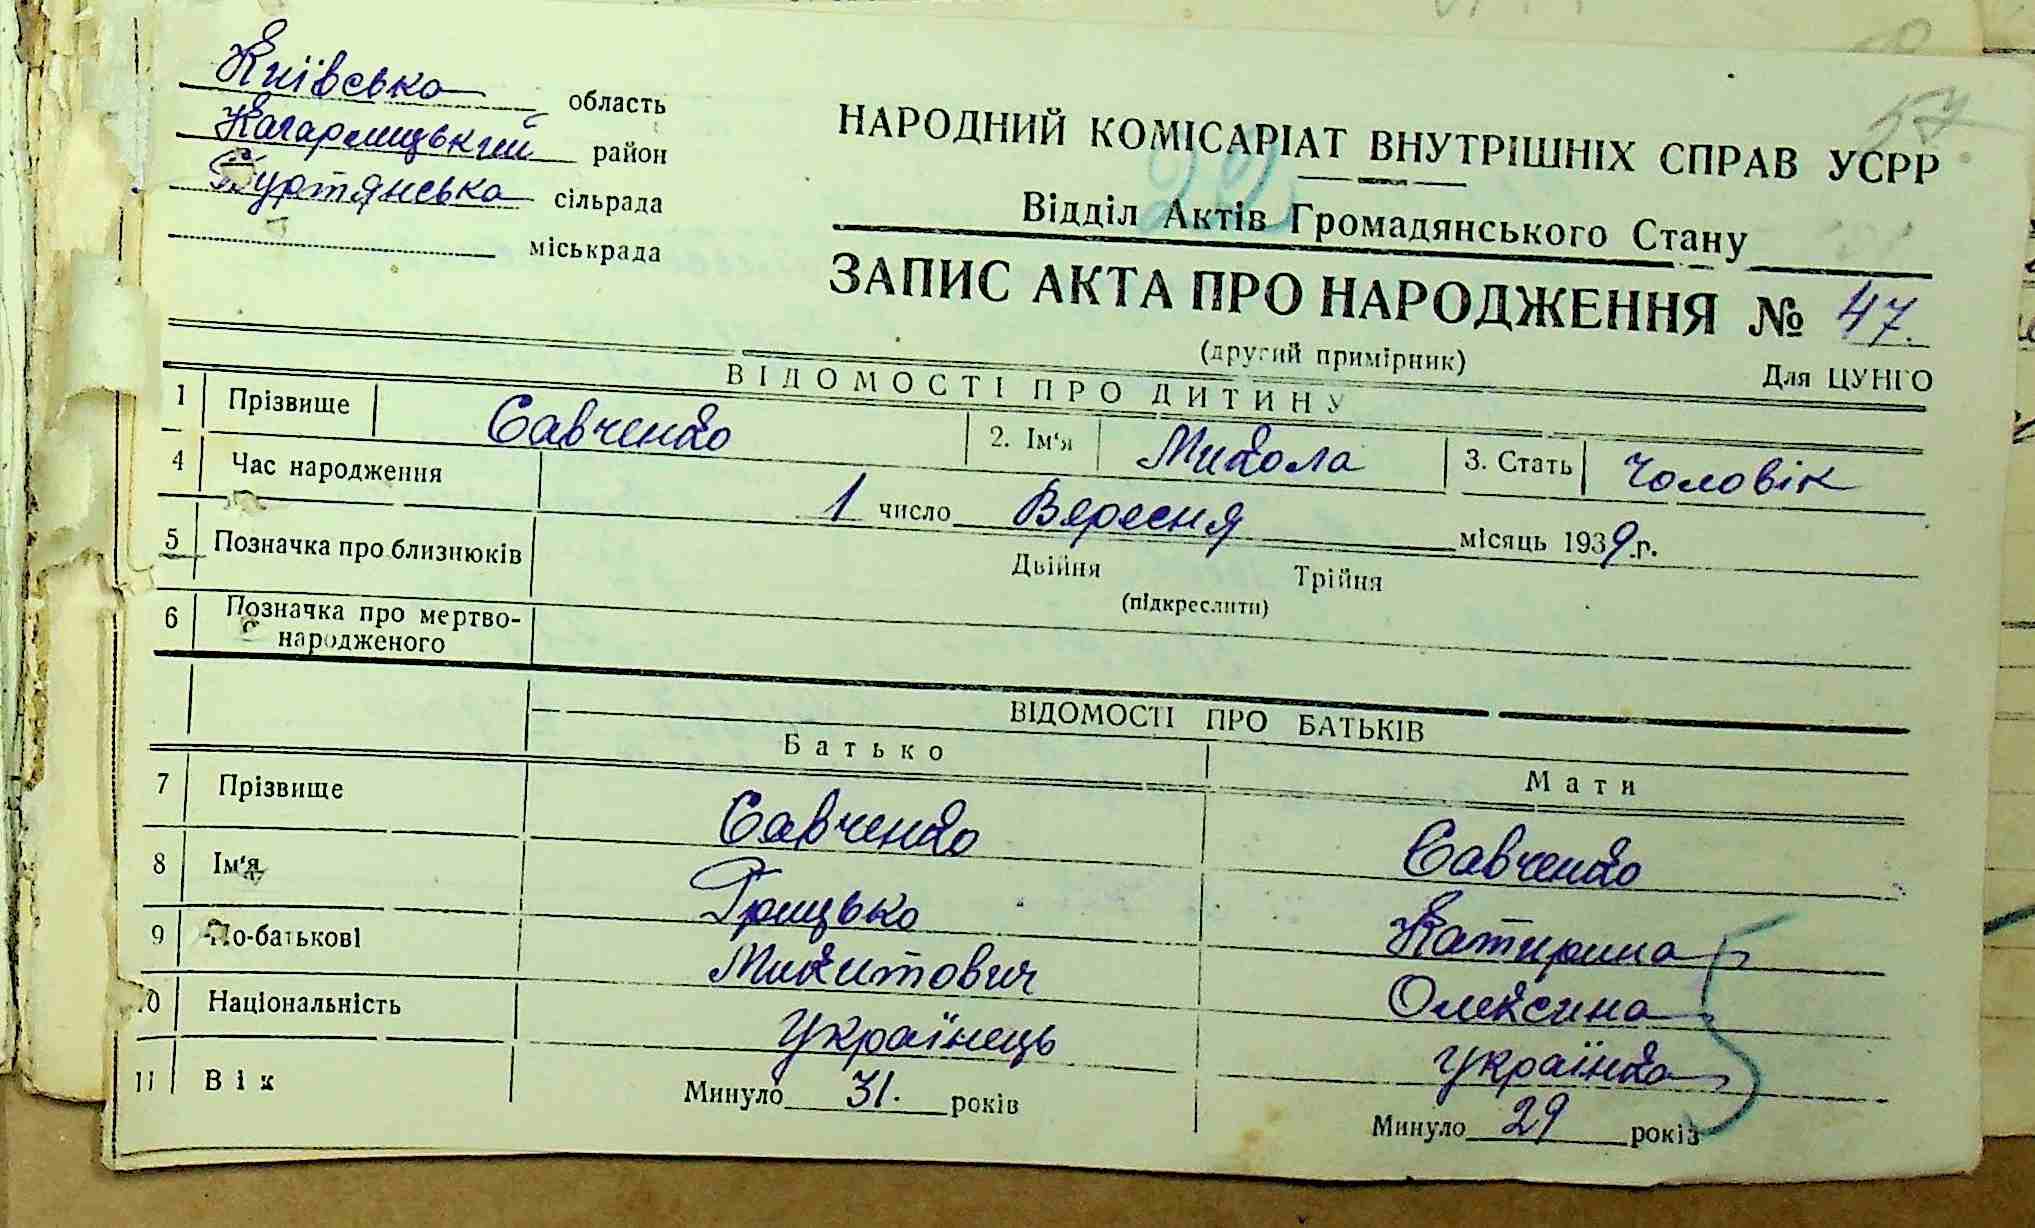 Київська область
Кагарлицький район
Буртянська сільрада
міськрада
НАРОДНИЙ КОМІСАРІАТ ВНУТРІШНІХ СПРАВ УСРР
22
57.
Відділ Актів Громадянського Стану
ЗАПИС АКТА ПРО НАРОДЖЕННЯ № 47.
(другий примірник)
Для ЦУНГО
ВІДОМОСТІ ПРО ДИТИНУ
1 Прізвище Савченко 2. Ім'я Микола 3. Стать Чоловік
4 Час народження 1 число Вересня місяць 1939 р.
5 Позначка про близнюків Двійня Трійня
(підкреслити)
6 Позначка про мертво-
народженого
ВІДОМОСТІ ПРО БАТЬКІВ
Батько Мати
7 Прізвище Савченко Савченко
8 Ім'я Грицько Катирина
9 По-батькові Микитович Олексина
10 Національність Українець Українка
11 Вік Минуло 31. років Минуло 29 років